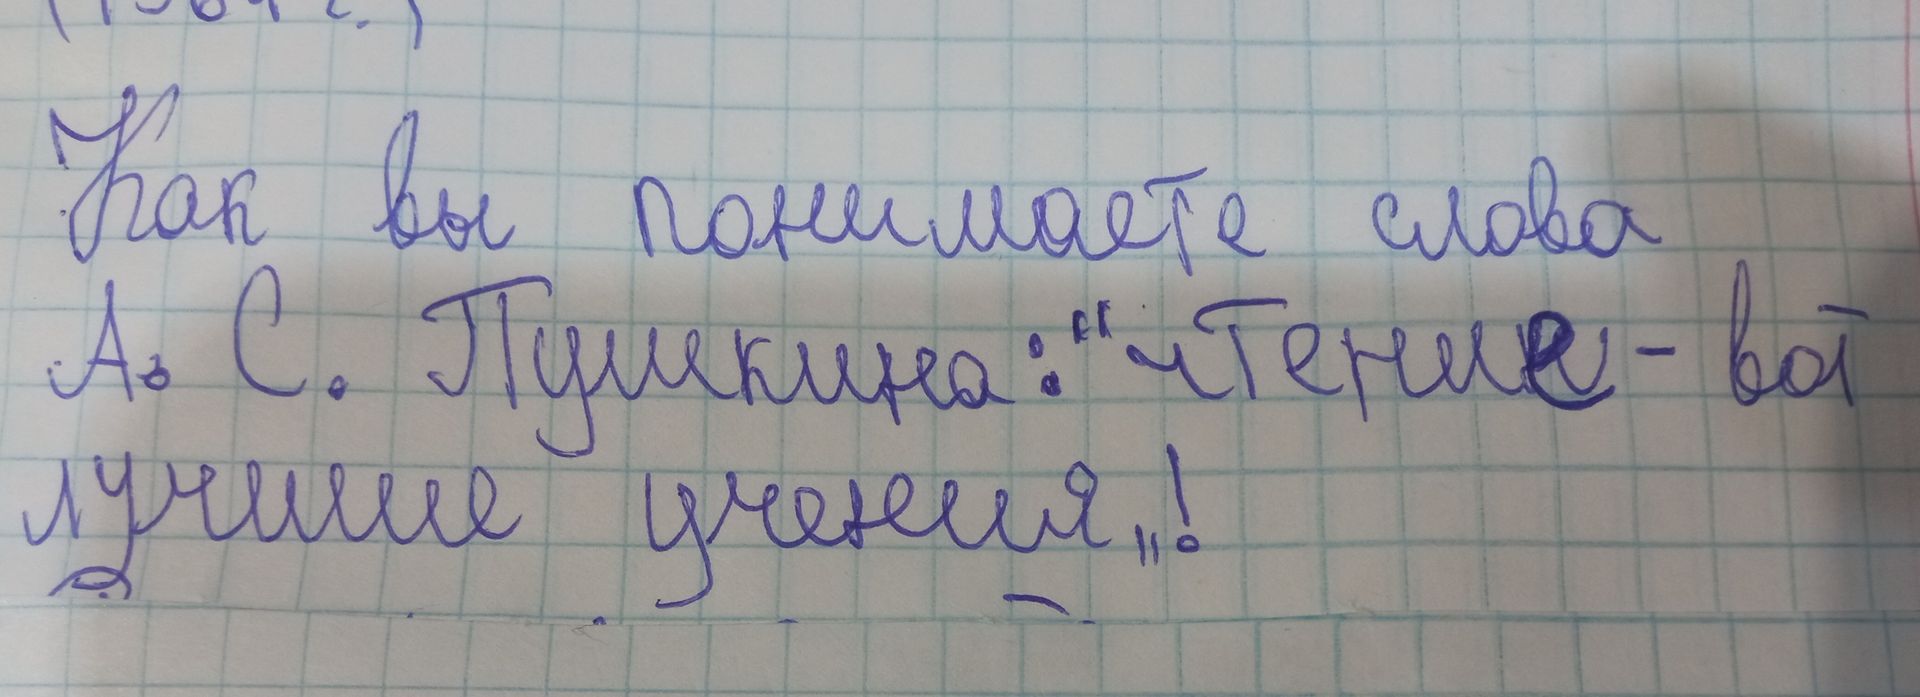 Как вы понимаете слова
А. С. Пушкина: "чтение - вот
лучшие учения„!